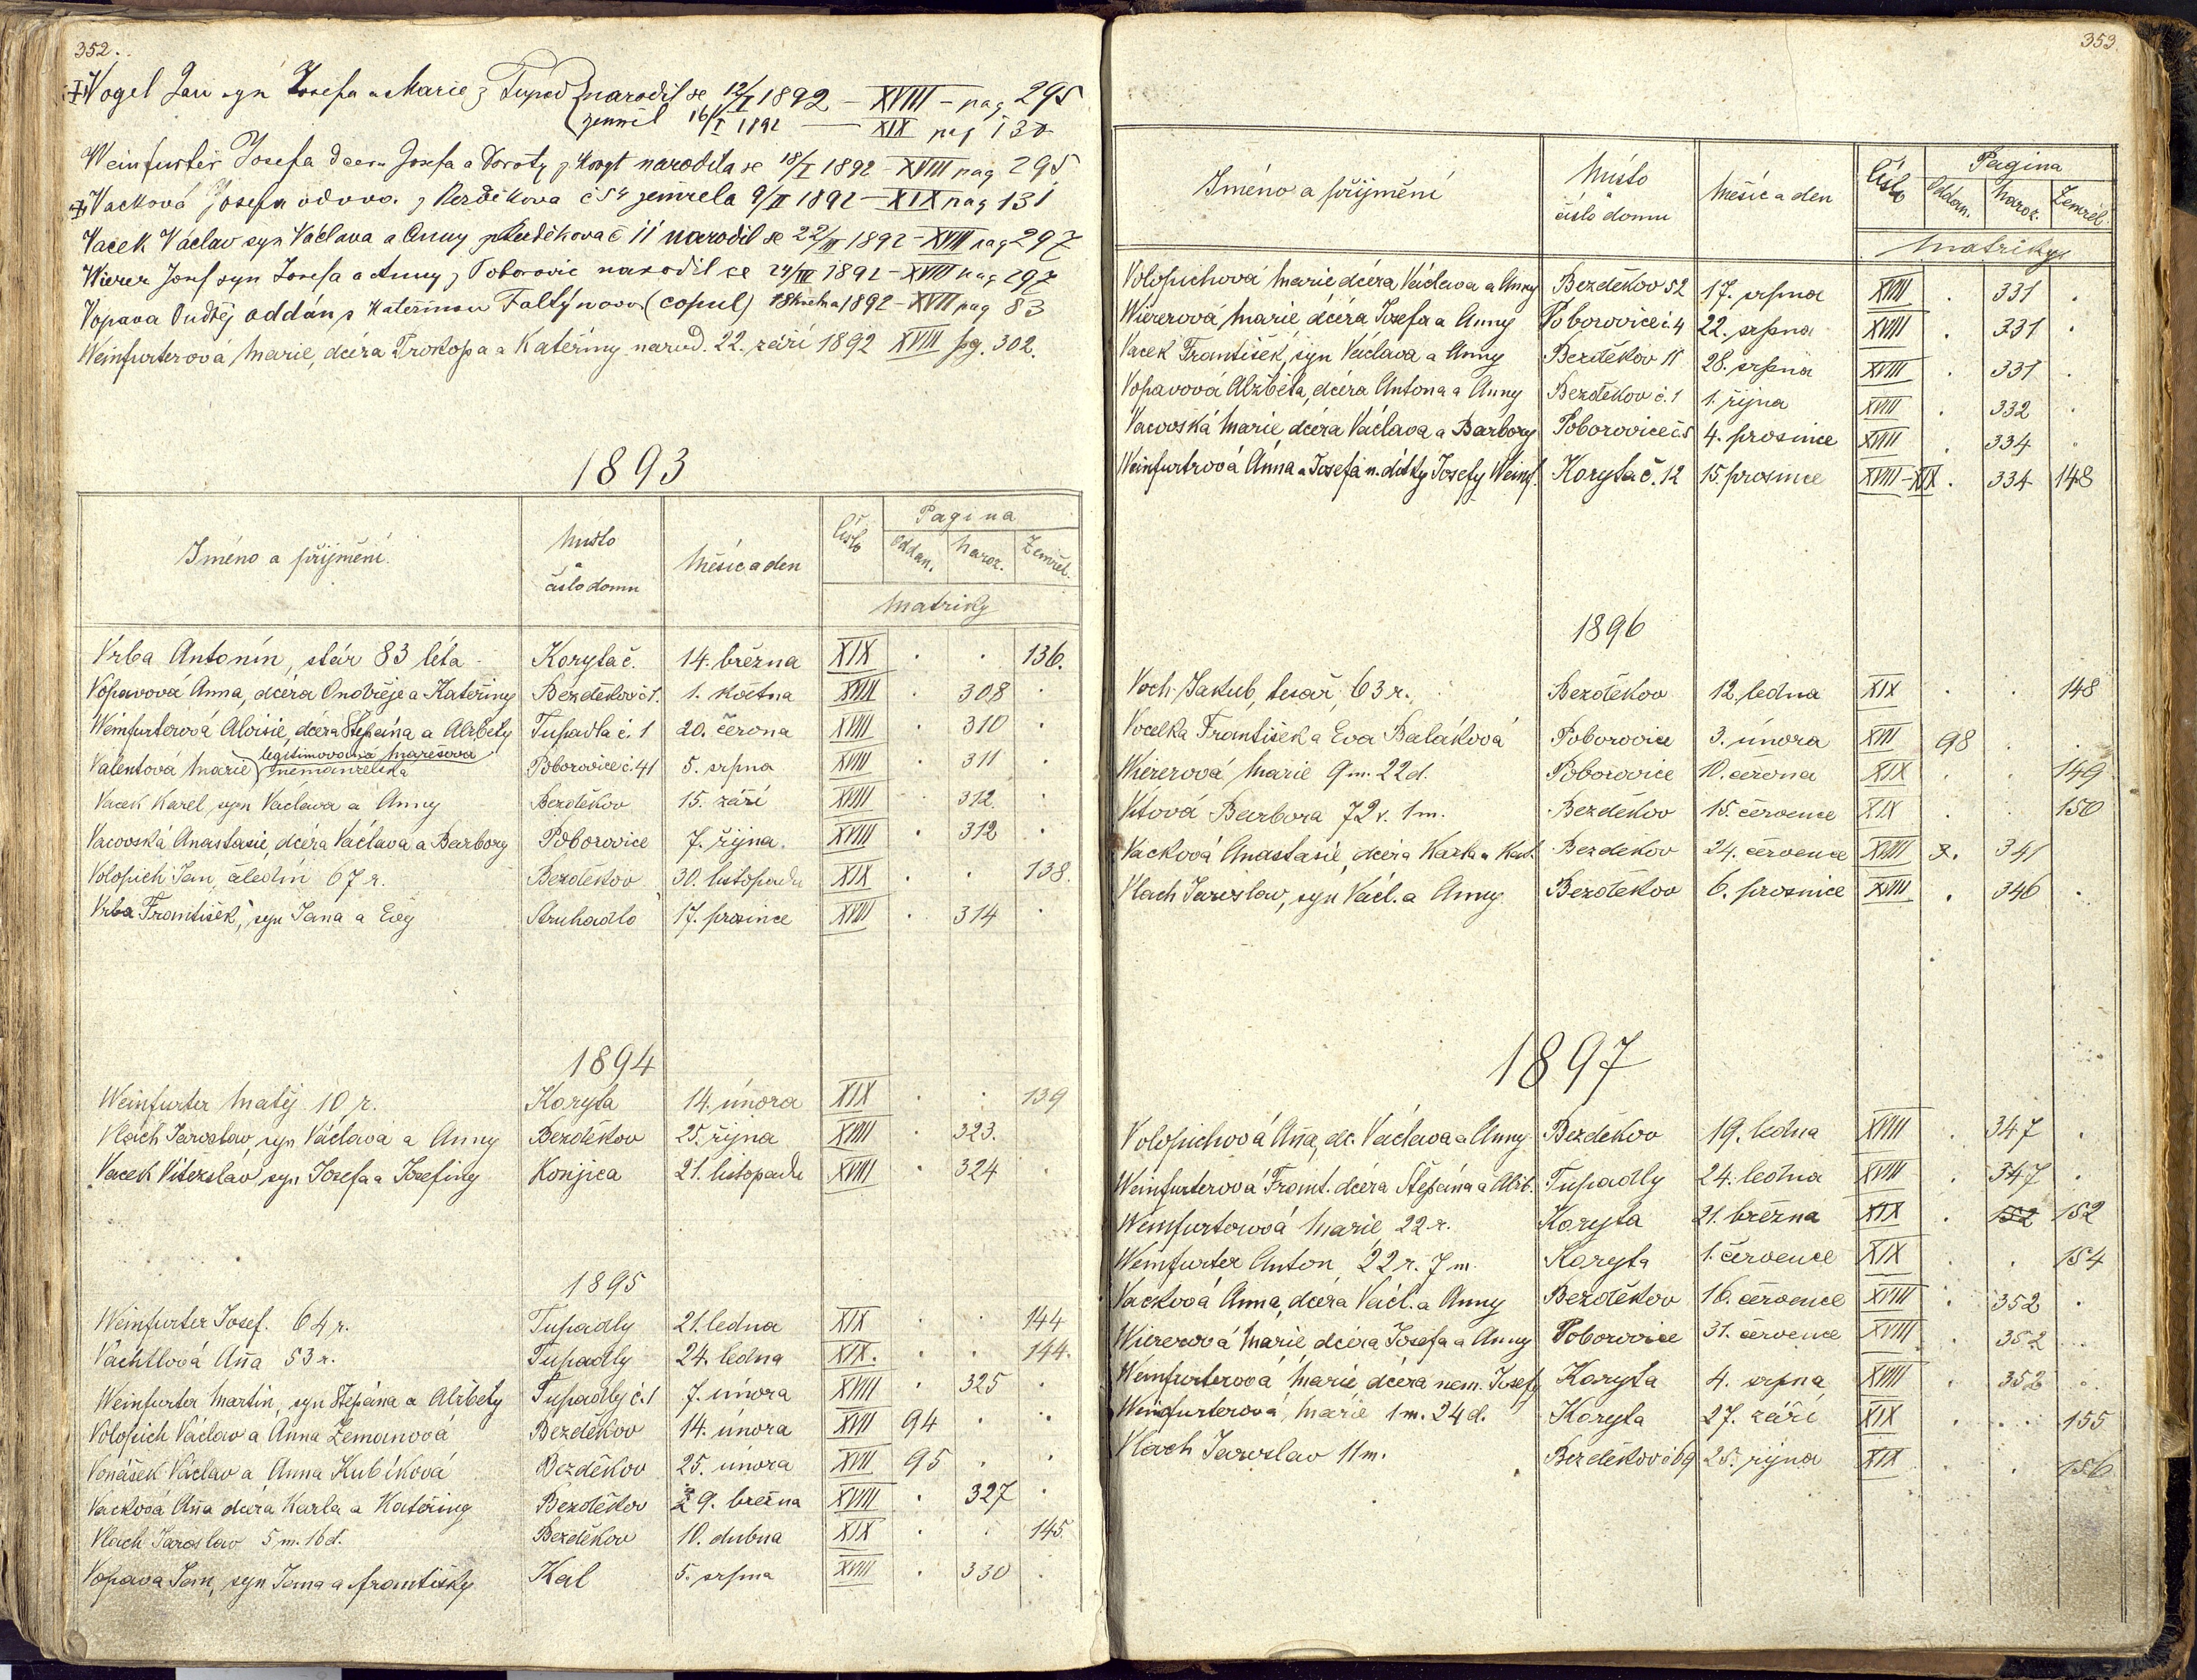 352.
Vogel Jan syn Josefa a Marie z Tupad narodil se 12/I 1892 – XVIII – pag 295
zemřel 16/I 1892 — XIX pag 130
Weinfurter Josefa dcera Josefa a Doroty z Koryt narodila se 18/I 1892 – XVIII pag 295
Vacková Josefa vdova z Bezděkova č 54 zemřela 9/II 1892 – XIX pag 131
Vacek Václav syn Václava a Anny z Bezděkova č 11 narodil se 22/III 1892 – XVIII pag 297
Wierer Josef syn Josefa a Anny z Poborovic narodil se 24/III 1892 – XVIII pag 297
Vopava Ondřej oddán s Kateřinou Faltýnovou (copul) 1892 – XVII pag 83
Weinfurterová Marie, dcéra Prokopa a Kateřiny narod. 22. září 1892 XVIII pg. 302.
1893
Jméno a příjmění. Místo a číslo domu Měsíc a den Číslo Pagina
Oddan. Naroz. Zemřel.
Matriky
Vrba Antonín, stár 83 léta Koryta č. 14. března XIX . . 136.
Vopavová Anna, dcéra Ondřeje a Kateřiny Bezděkov č 1. 1. května XVIII 308 .
Weinfurterová Aloisie, dcéra Štěpána a Alžběty Tupadla č. 1 20. června XVIII . 310 .
legitimovaná Marešova
Valentová Marie nemanželská Poborovice č. 41 5. srpna XVIII . 311 .
Vacek Karel, syn Václava a Anny Bezděkov 15. září XVIII . 312. .
Vacovská Anastasie, dcéra Václava a Barbory Poborovice 7. října. XVIII . 312 .
Volopich Jan, čeledín 67 r. Bezděkov 30. listopadu XIX . . 138.
Vrba František, syn Jana a Evy Struhadlo 17. prosince XVIII . 314 .
1894
Weinfurter Matěj 10 r. Koryta 14. února XIX . . 139
Vlach Jaroslav, syn Václava a Anny Bezděkov 25. října XVIII . 323. .
Vacek Vítězslav, syn Josefa a Josefiny Konjica 21. listopadu XVIII . 324 .
1895
Weinfurter Josef. 64 r. Tupadly 21. ledna XIX . . 144
Vachtlová Aňa 53 r. Tupadly 24. ledna XIX. . . 144.
Weinfurter Martin, syn Štěpána a Alžběty Tupadly č. 1 7. února XVIII . 325 .
Volopich Václav a Anna Zemanová Bezděkov 14. února XVII 94 . .
Vonášek Václav a Anna Kubíková Bezděkov 25. února XVII 95 . .
Vacková Aňa dcéra Karla a Kateřiny Bezděkov 29. března XVIII . 327 .
Vlach Jaroslav 5 m. 16 d. Bezděkov 10. dubna XIX . . 145.
Vopava Jan, syn Jana a Františky Kal 5. srpna XVIII . 330 .
353.
Jméno a příjmění Místo číslo domu Měsíc a den Číslo Pagina
Oddan. Naroz. Zemřel.
Matriky
Volopichová Marie dcéra Václava a Anny Bezděkov 52 17. srpna XVIII . 331 .
Wiererová Marie, dcéra Josefa a Anny Poborovice č. 4 22. srpna XVIII . 331 .
Vacek František, syn Václava a Anny Bezděkov 11 28. srpna XVIII . 331 .
Vopavová Alžběta, dcéra Antona a Anny Bezděkov č. 1 1. října XVIII . 332 .
Vacovská Marie, dcéra Václava a Barbory Poborovice č 5 4. prosince XVIII . 334 .
Weinfurtrová Anna a Josefa n. dítky Josefy Weinf. Koryta č. 12 15. prosince XVIII–XIX . 334 148
1896
Voch Jakub, tesař, 63 r. Bezděkov 12. ledna XIX . . 148
Vocelka František a Eva Baláková Poborovice 3. února XVII 98 . .
Wiererová Marie 9 m. 22 d. Poborovice 10. června XIX . . 149
Vítová Barbora 72 r. 1 m. Bezděkov 15. července XIX . . 150
Vacková Anastasie, dcéra Karla a Kat. Bezděkov 24. července XVIII . 341
Vlach Jaroslav, syn Václ. a Anny Bezděkov 6. prosince XVIII . 346 .
1897
Volopichová Aňa, dc. Václava a Anny Bezděkov 19. ledna XVIII . 347 .
Weinfurterová Frant. dcéra Štěpána a Alžb. Tupadly 24. ledna XVIII . 347 .
Weinfurterová Marie 22 r. Koryta 21. března XIX . 152 152
Weinfurter Anton 22 r. 7 m. Koryta 1. července XIX . . 154
Vacková Anna, dcéra Václ. a Anny Bezděkov 16. července XVIII . 352 .
Wiererová Marie, dcéra Josefa a Anny Poborovice 31. července XVIII . 352 .
Weinfurterová Marie, dcéra nem. Josefy Koryta 4. srpna XVIII . 352 .
Weinfurterová, Marie 1 m. 24 d. Koryta 27. září XIX . . 155
Vlach Jaroslav 11 m. Bezděkov č 69 25. října XIX . . 156